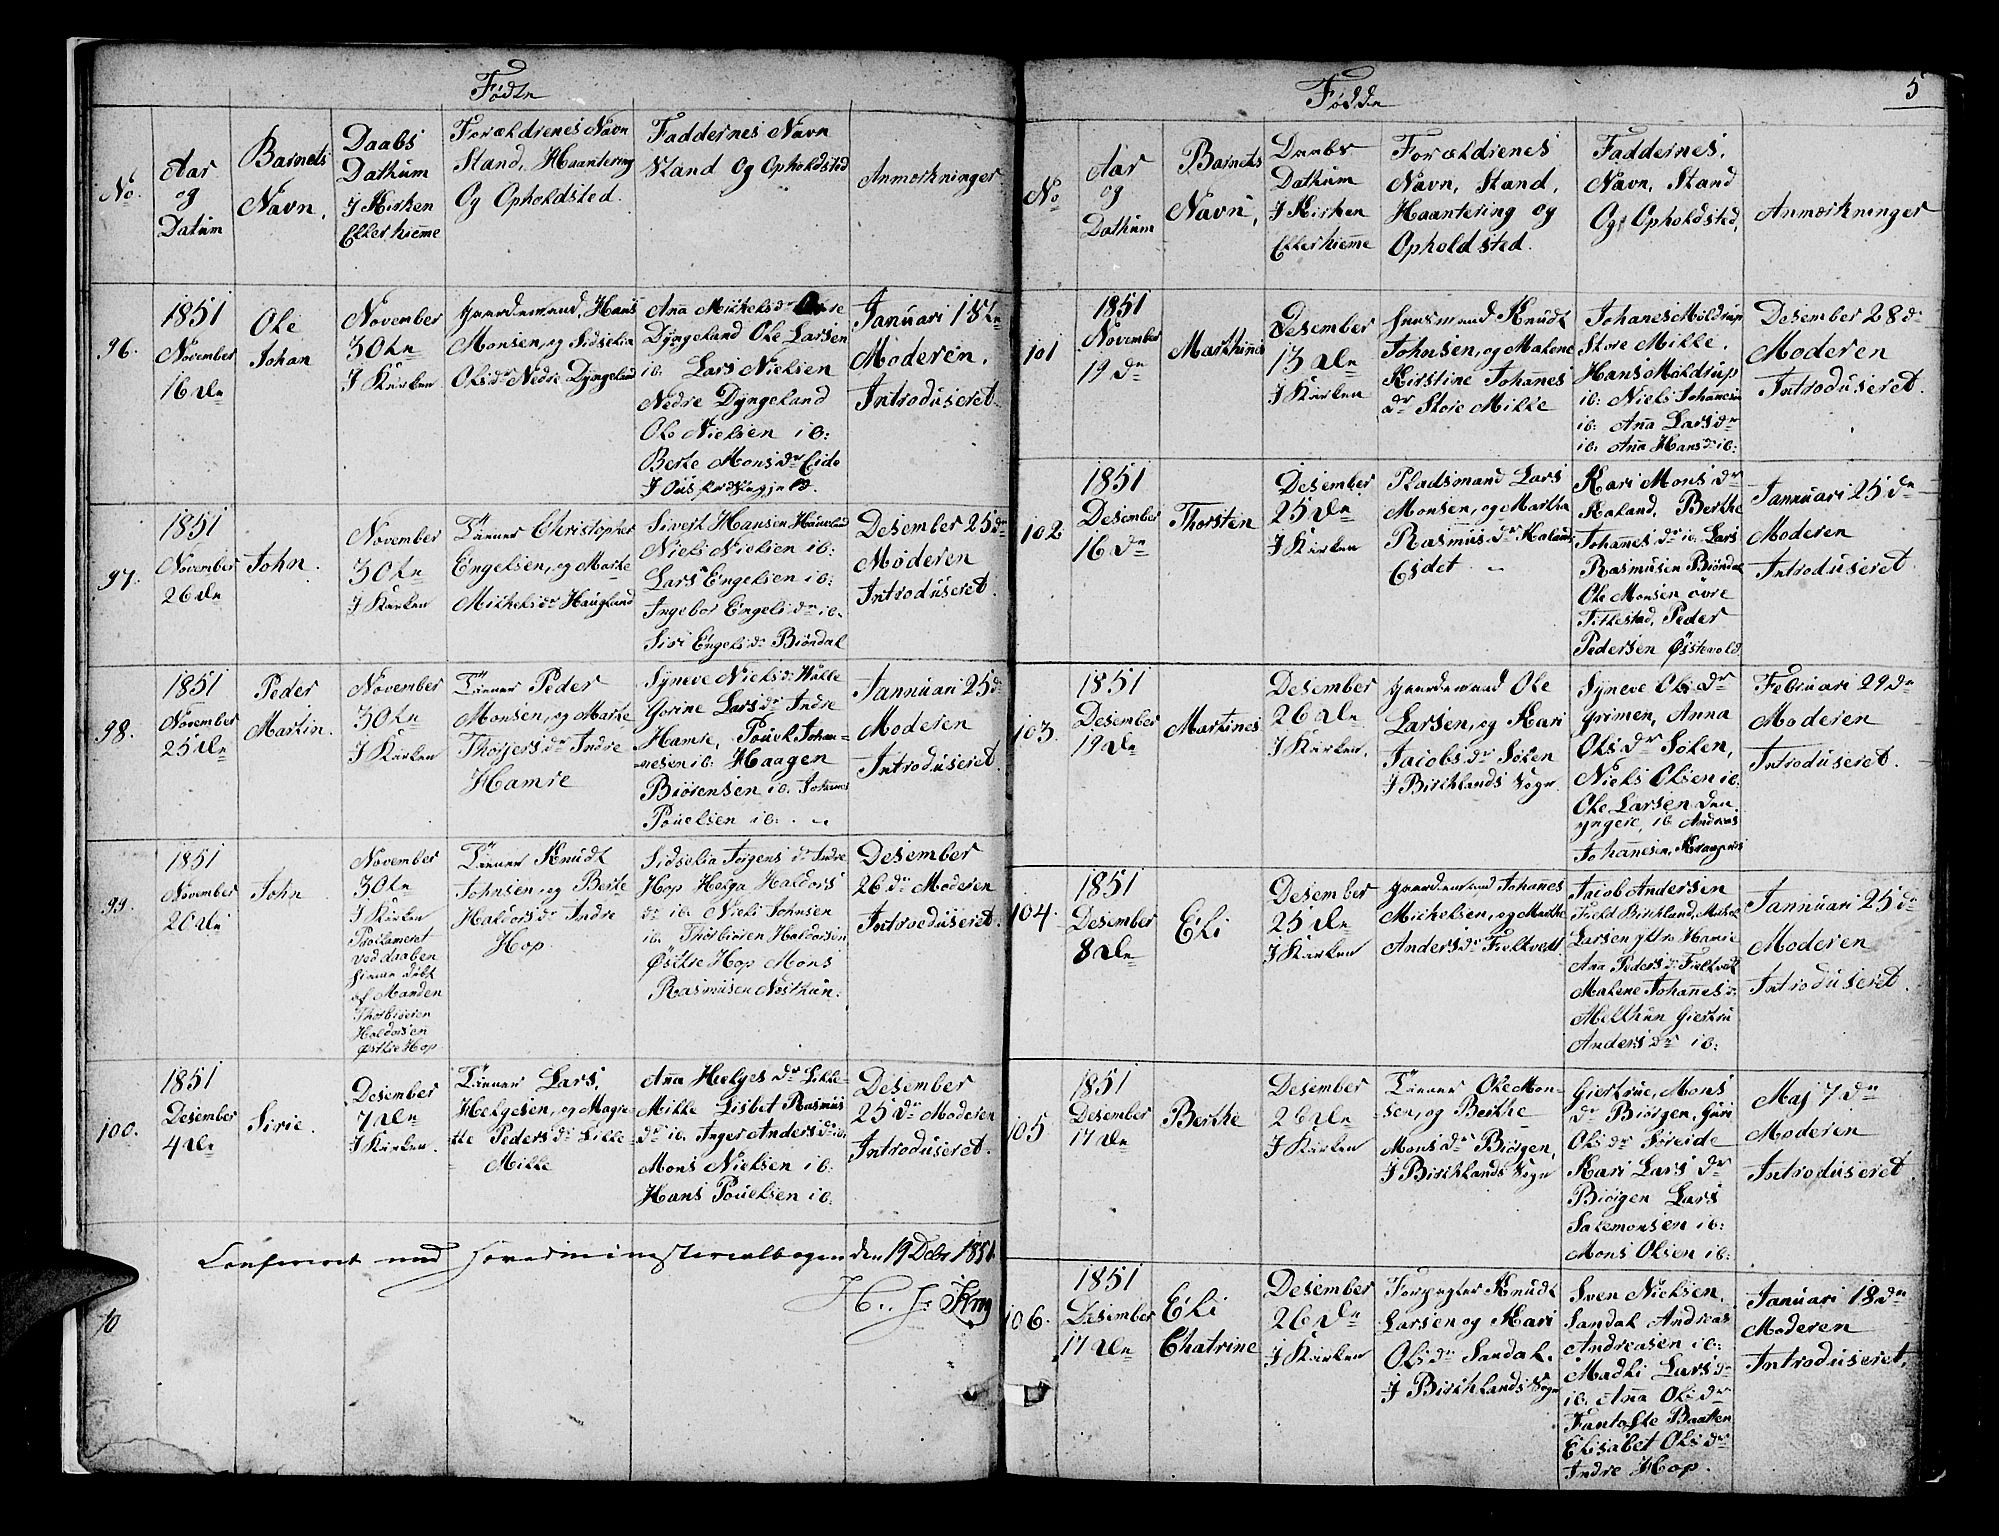 Fødte
No.
Aar
og
Datum
Barnets
Navn.
Daabs
Dathum
I Kirken
Eller hieme
Forældrenes Navn
Stand, Haantering
Og Opholdsted.
Faddernes Navn
Stand Og Opholdsted
Anmærkninger
96.
1851
November
16 de
Ole
Johan
November
30te
I Kirken
Gaardemand, Hans
Monsen, og Sidselia
Olsdr Nedre Dyngeland
Ana Mikkelsdr
Dyngeland Ole Larsen
ib: Lars Nielsen
Nedre Dyngeland
Ole Nielsen ib:
Berte Monsdr Eide
I
Januari 18de
Moderen.
Introduseret.
97.
1851
November
26 de
John.
November
30te
I Kirken
Christopher
Engelsen, og Marte
Mikkelsdr Haugland
Sivert Hansen Haugland
Niels Nielsen ib:
Lars Engelsen ib:
Ingebor Engelsdr ib.
Siri Engelsdr Biøndal
Desember 25de
Moderen
Introduseret.
98.
1851
November
25 de
Peder
Martin.
November
30te
I Kirken
Peder
Monsen, og Marte
Thorgersdr Indre
Hamre
Syneve Nielsdr Hille
Gorine Larsdr Indre
Hamre, Pouel Johan-
nesen ib: Haagen
Biørensen ib. Johanes
Pouelsen ib:
Januari 25de
Moderen
Introduseret.
99.
1851
November
20 de
John
November
30te
I Kirken
Proclameret
ved daaben
hieme døbt
af Manden
Thorbiøren
Haldorsen
Østre Hop
Knudt
Johnsen, og Berte
Haldorsdr Indre
Hop.
Sidselia Jørgensdr Indre
Hop Helga Haldors
dr ib. Niels Johnsen
ib. Thorbiøren Haldorsen
Østre Hop Mons
Rasmusen Nøsthun.
Desember
26de Moderen
Introduseret.
100.
1851
Desember
4 de
Sirie.
Desember
7 de
I Kirken.
Lars
Helgesen, og Magre-
tte Pedersdr Lille
Milde
Ana Helgesdr Lille-
Milde Lisbet Rasmus
dr ib. Inger Andersdr ib.
Mons Nielsen ib:
Hans Pouelsen ib.
Desember
25de Moderen
Introduseret.
Confereret med Hovedministerialbogen den 19 Decbr 1851.
10
Fødde
5
No
Aar
og
Dathum
Barnets
Navn,
Daabs
Dathum
I Kirken
Eller hieme
Forældrenes
Navn, Stand,
Haantering og
Opholdsted.
Faddernes,
Navn, Stand
Og, Opholdsted,
Anmærkninger
101
1851
November
19 de
Marthines
Desember
13 de
I Kirken
Huusmand Knudt
Johnsen, og Malene
Kirstine Johanes
dr Store Milde
Johanes Moldrup
Store Milde.
Hans Moldrup
ib: Niels Johanesen
ib: Ana Larsdr
ib. Ana Hansdr ib:
Desember 28de
Moderen
Introduseret.
102
1851
Desember
16 de
Thorsten
Desember
25 de
I Kirken
Pladsmand Lars
Monsen, og Martha
Rasmusdr Kaland
Esdet
Kari Monsdr
Kaland, Berthe
Johanesdr ib. Lars
Rasmusen Biøndal
Ole Monsen øvre
Titlestad, Peder
Pedersen Østevold
Januari 25de
Moderen
Introduseret.
103.
1851
Desember
19 de
Martines
Desember
26 de
I Kirken.
Gaardemand Ole
Larsen, og Kari
Jacobsdr Søilen
I Birchlands Sogn
Syneve Olsdr
Grimen, Anna
Olsdr Sølen,
Niels Olsen ib:
Ole Larsen den
yngere, ib Andreas
Johanesen,
Februari 29de
Moderen
Introduseret.
104.
1851
Desember
8 de
Eli
Desember
25 de
I Kirken
Gaardemand Johanes
Mickelsen, og Marthe
Andersdr Fieldtvedt
Jacob Andersen
Field Birchland, Mikel
Larsen yttre Hamre
Ana Pedersdr Fieltvedt
Malene Johanesdr
Melthun Giertru
Andersdr ib:
Januari 25de
Moderen
Introduseret.
105
1851
Desember
17 de
Berthe
Desember
26 de
I Kirken
Ole Mon-
sen, og Berthe
Monsdr Biørgen,
I Birchlands Sogn
Giertrue, Mons
dr Biørgen, Guri
Olsdr Søreide
Kari Larsdr
Biørgen Lars
Salemonsen ib:
Mons Olsen ib:
Maj 7de
Moderen
Introduseret.
106.
1851
Desember
17 de
Eli
Chatrine
Desember
26 de
I Kirken
Forpagter Knudt
Larsen og Kari
Olsdr Sandal.
I Birchlands Sogn
Sven Nielsen,
Sandal Andreas
Andreasen ib:
Madli Larsdr
ib. Ana Olsdr
Fantofte Baatten
Elisabet Olsdr
Indre Hop.
Januari 18de
Moderen
Introduseret.